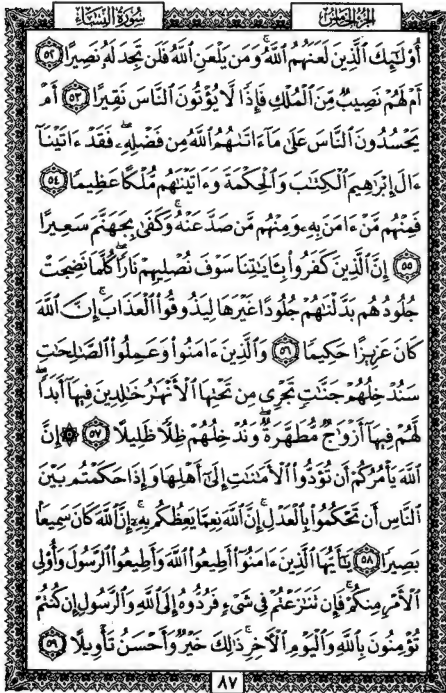 الجزء الخامس
سورة النساء
أُوْلَٰٓئِكَ ٱلَّذِينَ لَعَنَهُمُ ٱللَّهُۖ وَمَن يَلْعَنِ ٱللَّهُ فَلَن تَجِدَ لَهُۥ نَصِيرًا ٥٢
أَمْ لَهُمْ نَصِيبٌ مِّنَ ٱلْمُلْكِ فَإِذًا لَّا يُؤْتُونَ ٱلنَّاسَ نَقِيرًا ٥٣ أَمْ
يَحْسُدُونَ ٱلنَّاسَ عَلَىٰ مَآ ءَاتَىٰهُمُ ٱللَّهُ مِن فَضْلِهِۦۖ فَقَدْ ءَاتَيْنَآ
ءَالَ إِبْرَٰهِيمَ ٱلْكِتَٰبَ وَٱلْحِكْمَةَ وَءَاتَيْنَٰهُم مُّلْكًا عَظِيمًا ٥٤
فَمِنْهُم مَّنْ ءَامَنَ بِهِۦ وَمِنْهُم مَّن صَدَّ عَنْهُۚ وَكَفَىٰ بِجَهَنَّمَ سَعِيرًا
٥٥ إِنَّ ٱلَّذِينَ كَفَرُوا۟ بِـَٔايَٰتِنَا سَوْفَ نُصْلِيهِمْ نَارًا كُلَّمَا نَضِجَتْ
جُلُودُهُم بَدَّلْنَٰهُمْ جُلُودًا غَيْرَهَا لِيَذُوقُوا۟ ٱلْعَذَابَۗ إِنَّ ٱللَّهَ
كَانَ عَزِيزًا حَكِيمًا ٥٦ وَٱلَّذِينَ ءَامَنُوا۟ وَعَمِلُوا۟ ٱلصَّٰلِحَٰتِ
سَنُدْخِلُهُمْ جَنَّٰتٍ تَجْرِى مِن تَحْتِهَا ٱلْأَنْهَٰرُ خَٰلِدِينَ فِيهَآ أَبَدًاۖ
لَّهُمْ فِيهَآ أَزْوَٰجٌ مُّطَهَّرَةٌۖ وَنُدْخِلُهُمْ ظِلًّا ظَلِيلًا ٥٧ ۞ إِنَّ
ٱللَّهَ يَأْمُرُكُمْ أَن تُؤَدُّوا۟ ٱلْأَمَٰنَٰتِ إِلَىٰٓ أَهْلِهَا وَإِذَا حَكَمْتُم بَيْنَ
ٱلنَّاسِ أَن تَحْكُمُوا۟ بِٱلْعَدْلِۚ إِنَّ ٱللَّهَ نِعِمَّا يَعِظُكُم بِهِۦٓۗ إِنَّ ٱللَّهَ كَانَ سَمِيعًۢا
بَصِيرًا ٥٨ يَٰٓأَيُّهَا ٱلَّذِينَ ءَامَنُوٓا۟ أَطِيعُوا۟ ٱللَّهَ وَأَطِيعُوا۟ ٱلرَّسُولَ وَأُو۟لِى
ٱلْأَمْرِ مِنكُمْۖ فَإِن تَنَٰزَعْتُمْ فِى شَىْءٍ فَرُدُّوهُ إِلَى ٱللَّهِ وَٱلرَّسُولِ إِن كُنتُمْ
تُؤْمِنُونَ بِٱللَّهِ وَٱلْيَوْمِ ٱلْءَاخِرِۚ ذَٰلِكَ خَيْرٌ وَأَحْسَنُ تَأْوِيلًا ٥٩
٨٧